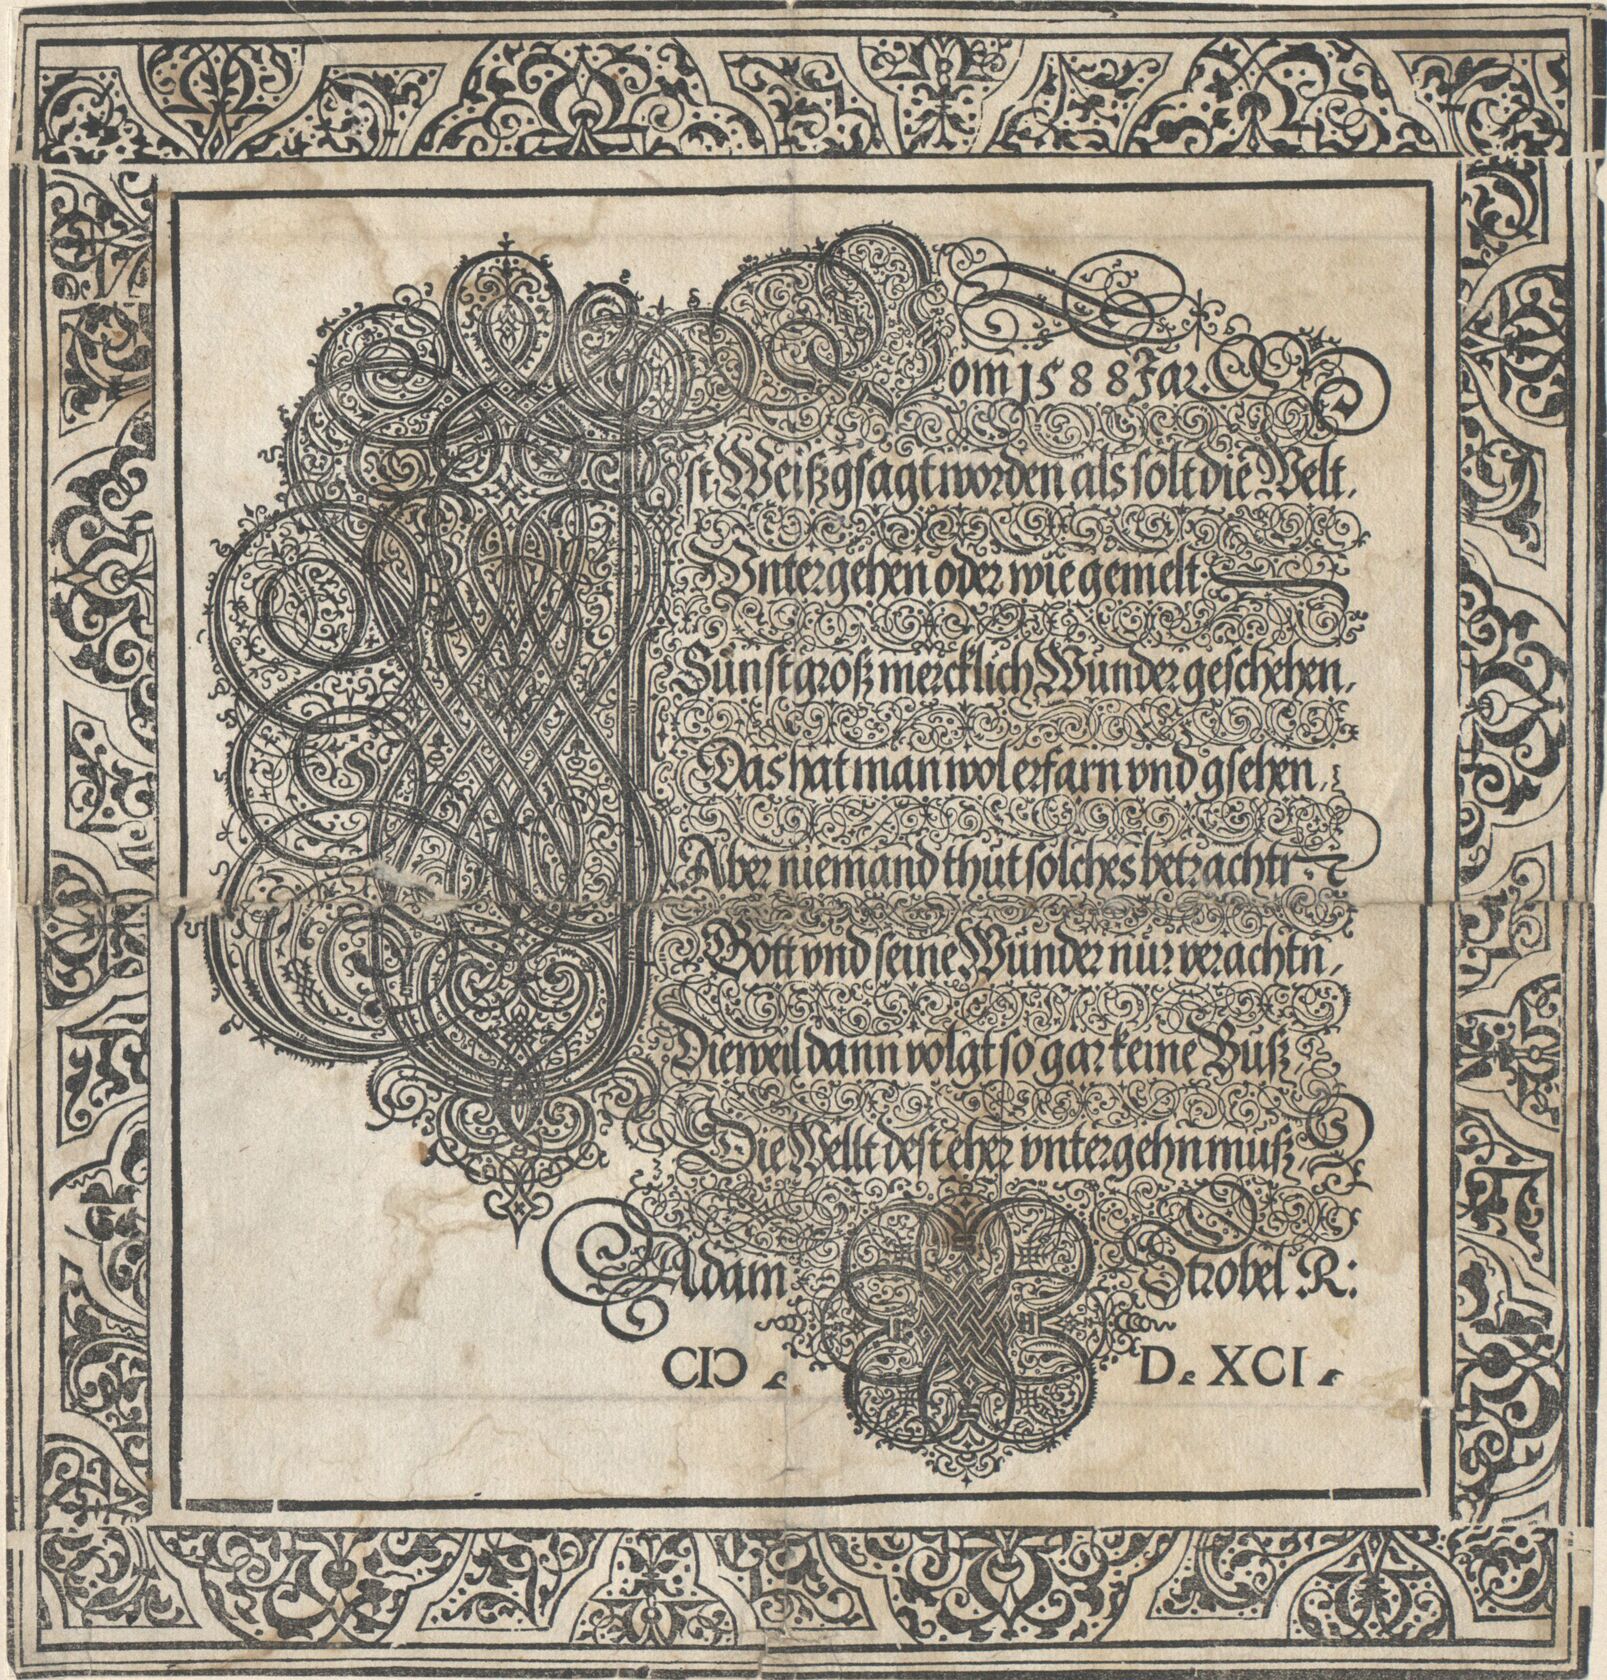 Vom 1588 Jar.
Ist Weißgsagt worden als solt die Welt,
Vntergehen oder wie gemelt.
Sunst groß mercklich Wunder geschehen,
Das hat man wol erfarn vnd gsehen,
Aber niemand thut solches betrachtn.
Gott vnd seine Wunder nur verachtn,
Dieweil dann volgt so gar keine Buß,
Die Wellt dest eher vntergehn muß,
Adam Strobel R:
CIↃ. D. XCI.